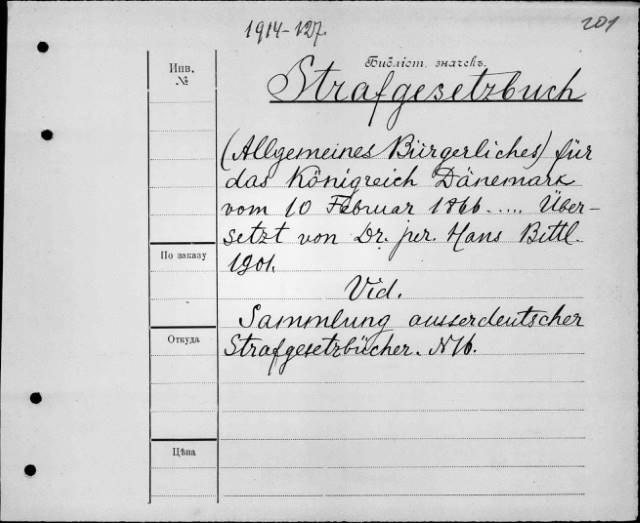 1914-127.
201
Инв.
№
Библіот. значекъ.
Strafgesetzbuch
(Allgemeines Bürgerliches) für
das Königreich Dänemark
vom 10 Februar 1866..... Über-
setzt von Dr. jur. Hans Bittl.
1901.
По заказу
Vid.
Sammlung ausserdeutscher
Откуда
Strafgesetzbücher. N16.
Цѣна